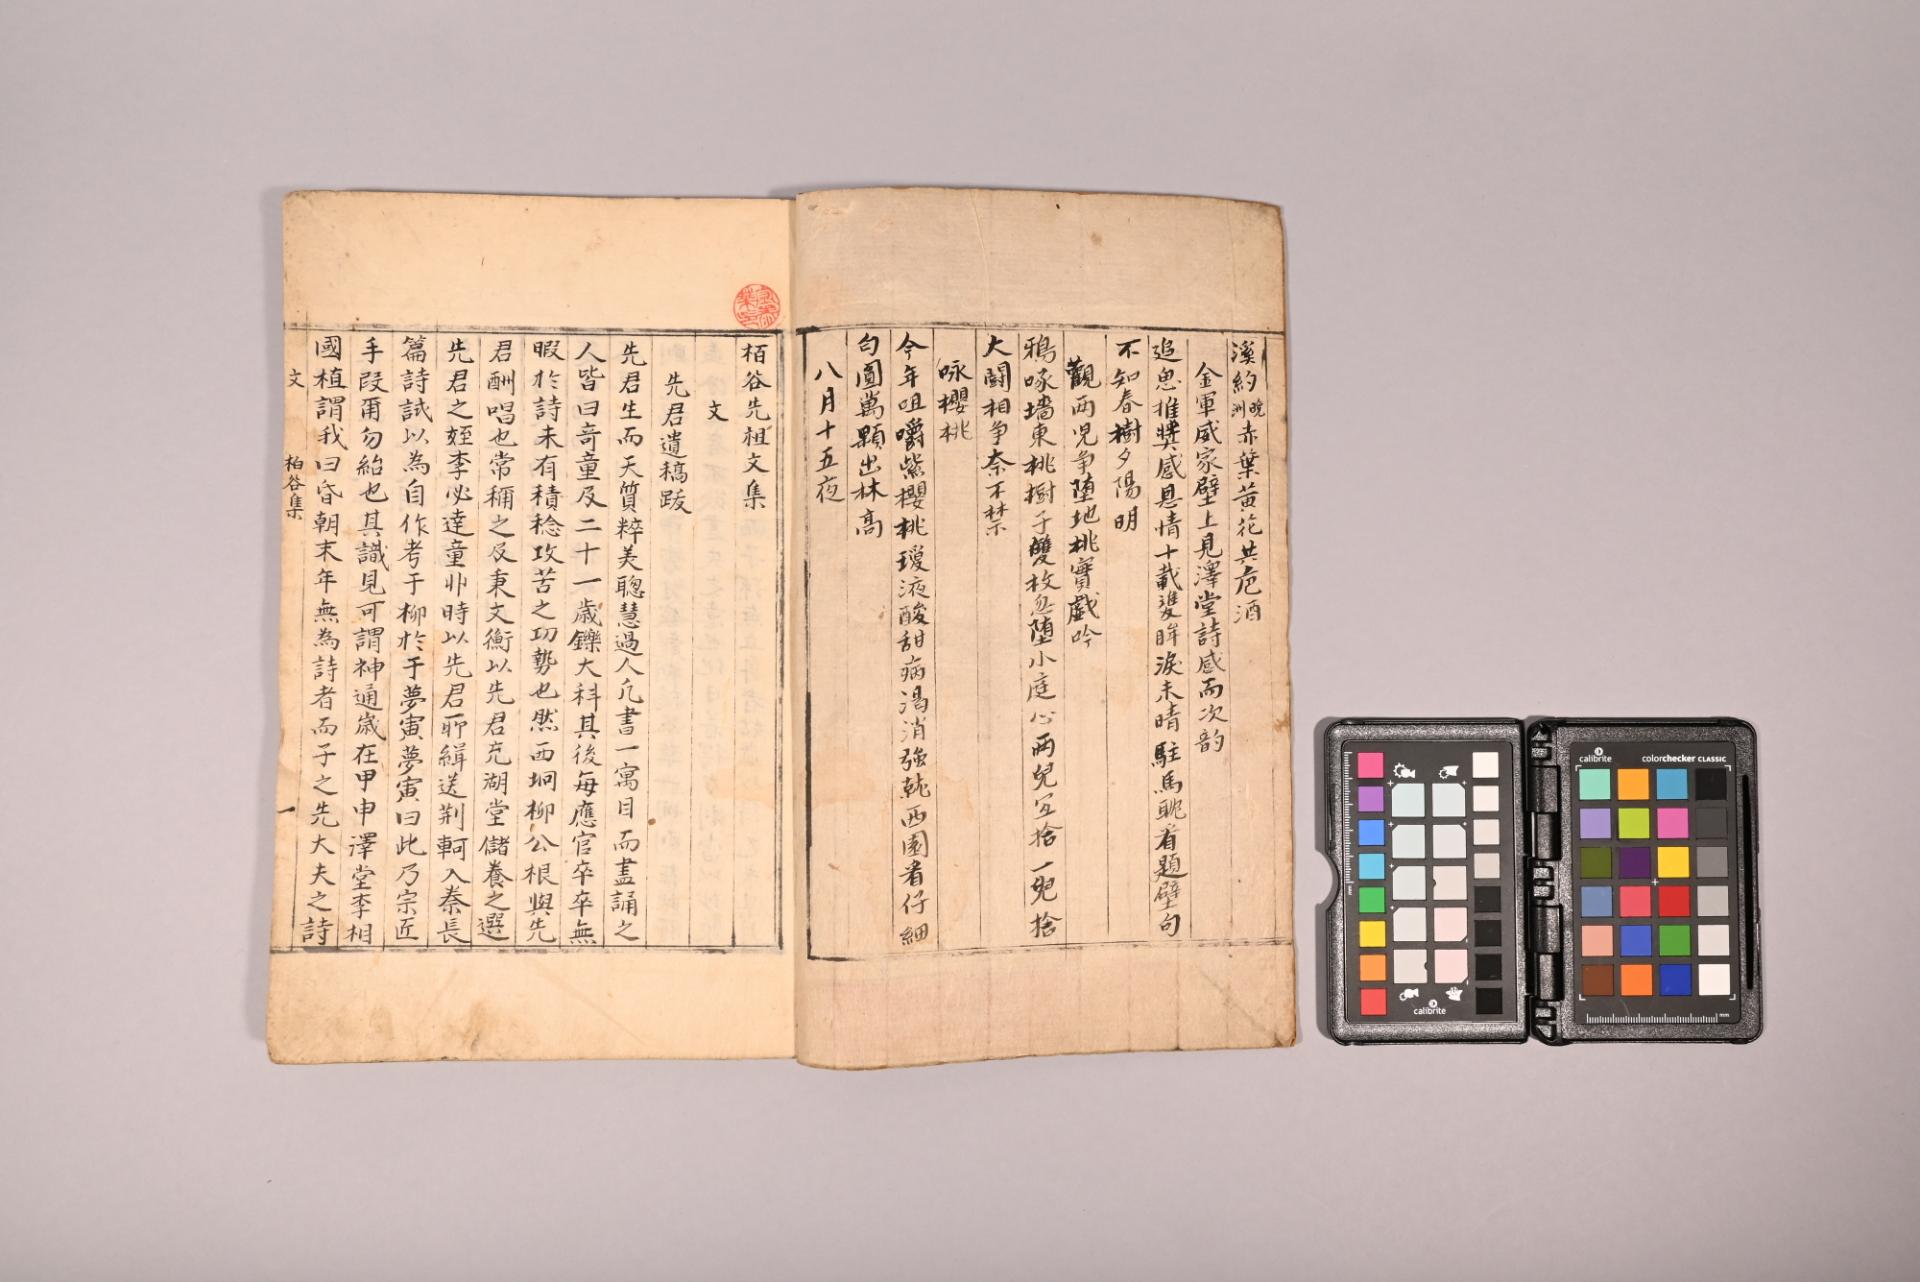 溪約晩洲赤葉黃花共巵酒
金軍威家壁上見澤堂詩感而次韵
追思推奬感恩情十載雙眸淚未晴駐馬眂看題壁句
不知春樹夕陽明
觀两児争墮地桃實戱吟
鴉啄墻東桃樹子雙枚忽墮小庭心两兒互捨一兒捨
大闘相争奈不禁
咏櫻桃
今年咀嚼紫櫻桃瓊液酸甜病渴消强乾西園看仔細
勻圓萬顆出林高
八月十五夜
栢谷先祖文集
文
先君遺稿跋
先君生而天質粹美聰慧過人凢書一寓目而盡誦之
人皆曰奇童及二十一歲鑠大科其後每應官卒卒無
暇於詩未有積稔攻苦之功勢也然西坰柳公根與先
君酬唱也常稱之及秉文衡以先君充湖堂儲養之選
先君之姪李必達童丱時以先君聊緝送荆軻入秦長
篇詩試以為自作考于柳於于夢寅夢寅曰此乃宗匠
手段爾勿紿也其識見可謂神通歲在甲申澤堂李相
國植謂我曰昏朝末年無為詩者而子之先大夫之詩
文 栢谷集 一
calibrite
calibrite colorchecker CLASSIC
mm